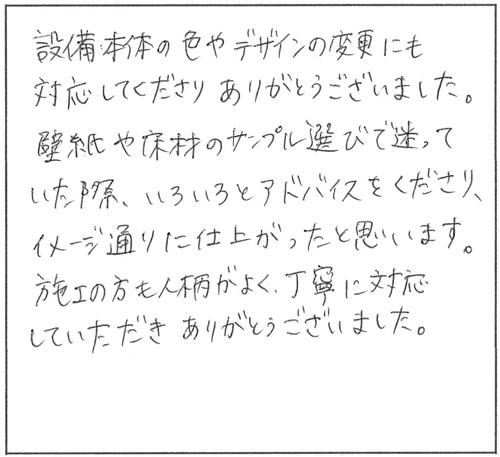 設備本体の色やデザインの変更にも
対応してくださり ありがとうございました。
壁紙や床材のサンプル選びで迷って
いた際、いろいろとアドバイスをくださり、
イメージ通りに仕上がったと思います。
施工の方も人柄がよく、丁寧に対応
していただき ありがとうございました。